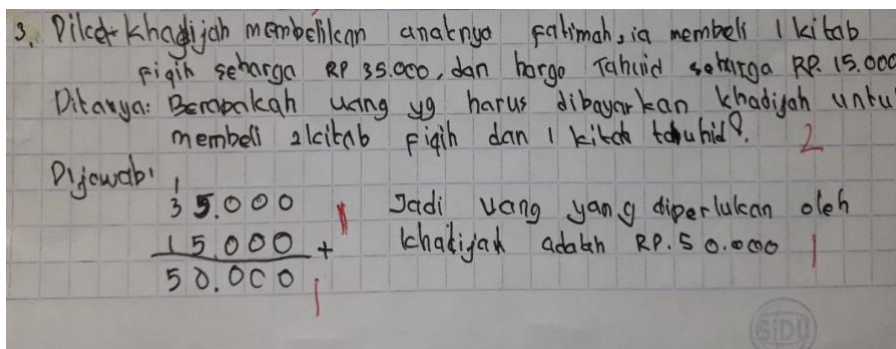 3. Diket Khadijah membelikan anaknya fatimah, ia membeli 1 kitab
fiqih seharga RP 35.000, dan harga Tahuid seharga RP. 15.000
Ditanya: Berapakah uang yg harus dibayarkan khadijah untu
membeli 2 kitab fiqih dan 1 kitab tauhid?. 2
Dijawab:
1
35.000 1 Jadi uang yang diperlukan oleh
15.000 + khadijah adalah RP. 50.000 1
50.000 1
SiDU